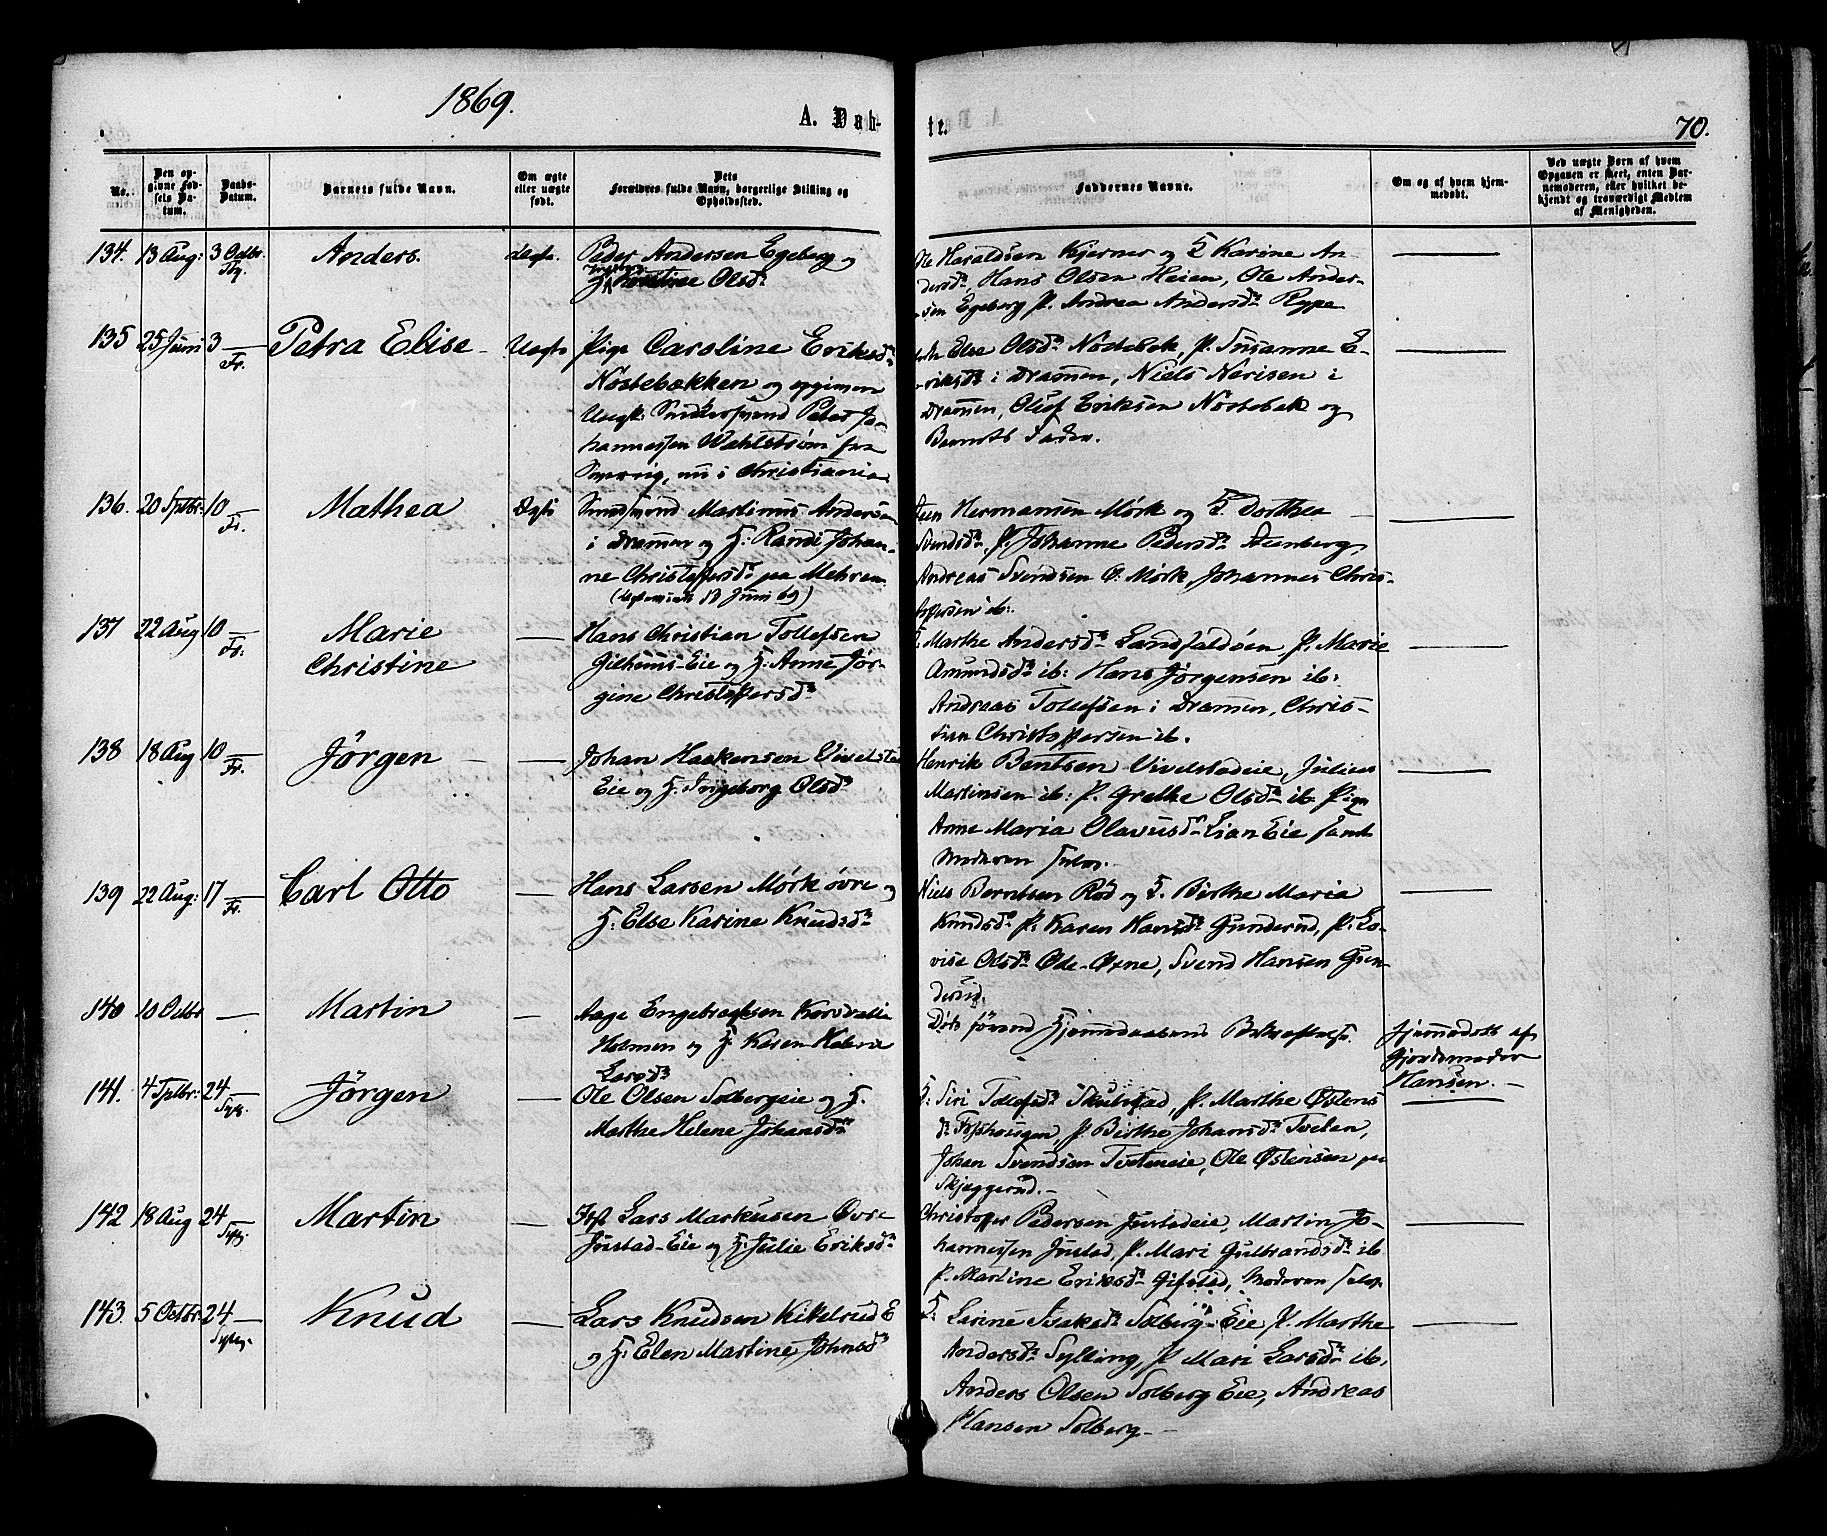 1869.
A. Dab-
te.
70.
No.
Den op-
givne Fød-
sels Da-
tum.
Daabs-
Datum.
Barnets fulde Navn.
Om ægte
eller uægte
født.
Dets
Forældres fulde Navn, borgerlige Stilling og
Opholdssted.
Faddernes Navne.
Om og af hvem hjem-
medøbt.
Ved uægte Børn af hvem
Opgaven er skeet, enten Bar-
nemoderen, eller hvilket be-
kjendt og troværdigt Medlem
af Menigheden.
134. 13 Aug: 3 Octbr. Anders. Ægte. Peder Andersen Egeberg og
Olsdr
Ole Haraldsen Kjerner og H Karine An-
dersdr, Hans Olsen Heien, Ole Ander-
sen Egeberg P. Andrea Andersdr Rype
135 25 Juni 3 — Fr. Petra Elise Uægte Pige Caroline Eriksdr
Nøstebækken og opgiven
Peter Jo-
hannessen Wahlstrøm fra
nu i Christiania
Else Olsdr Nøstebek, P. Susanne E-
riksdr i Drammen, Niels Nerisen i
Drammen, Oluf Eriksen Nøstebek og
Barnets Fader.
136. 20 Sptbr: 10 — Fr. Mathea Ægte Martinus Andersen
i Drammen og H: Randi Johan-
ne Christoffersdr paa Mehren
Juni 69)
Hermansen Mørk og H. Dorthea
Svendsdr, P. Johanne Pedersdr Steenberg,
Andreas Svendsen Ø. Mørk, Johannes Chris-
toffersen ib:
137 22 Aug 10 — Fr: Marie
Christine — Hans Christian Tollefsen
Gilhuus-Eie og H. Anne Jør-
gine Christoffersdr
H: Marthe Andersdr Landfaldøen, P. Marie
Amundsdr ib: Hans Jørgensen ib:
Andreas Tollefsen i Drammen, Chris-
tian Christoffersen ib.
138 18 Aug 10 — Fr. Jørgen — Johan Haakensen Vivelstad
Eie og H. Ingeborg Olsdr
Henrik Bentsen Vivelstadeie, Julius
Martinsen ib: P. Grethe Olsdr ib. Pige
Anne Maria Olavusdr Lian Eie samt
Moderen selv.
139 22 Aug: 17 — Fr. Carl Otto — Hans Larsen Mørk øvre og
H: Else Karine Knudsdr
Niels Berntsen Rød og H. Birthe Maria
Knudsdr P. Karen Hansdr Gunderud, P. Lo-
vise Olsdr Øde-Øxne, Svend Hansen Gun-
derud.
140 10 Octbr — Martin — Aage Engebretsen
Holmen og H. Karen
Larsdr
Døde førend Hjemmedaabens Bekræftelse. Hjemmedøbt af
Gjordemoder
Hansen. —
141. 4 Sptbr: 24 — Jørgen — Ole Olsen Solbergeie og H.
Marthe Helene Johansdr
H: Siri Tollefsdr P. Marthe Østens
dr P. Birthe Johansdr Tveten,
Johan Svendsen Tveteneie, Ole Østensen paa
Skjæggerud. —
142 18 Aug 24 — Martin — Lars Markusen Øvre
Justad-Eie og H. Julie Eriksdr
Christoffer Pedersen Justadeie, Martin Jo-
hannessen Justad, P. Mari Gulbrandsdr ib
P. Martine Eriksdr Gifstad, Moderen selv.
143. 5 Octbr: 24 — Knud — Lars Knudsen Kikelrud E
og H: Elen Martine Johnsdr
H: Larine Isaksdr Solberg-Eie P. Marthe
Andersdr Sylling, P Mari Larsdr ib.
Anders Olsen Solberg Eie, Andreas
Hansen Solberg —